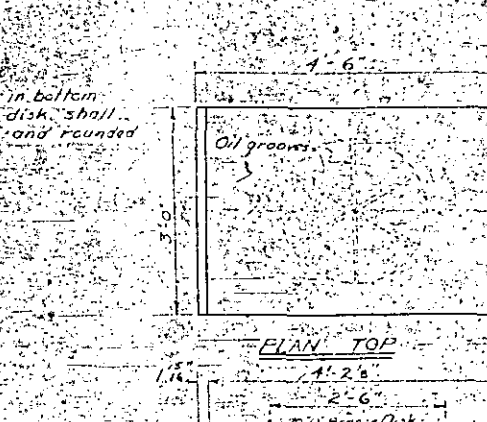 4'-6"
in bottom
disk shall
and rounded
Oil grooves
3'-0"
PLAN TOP
1 15/16"
2'-6"
Disk